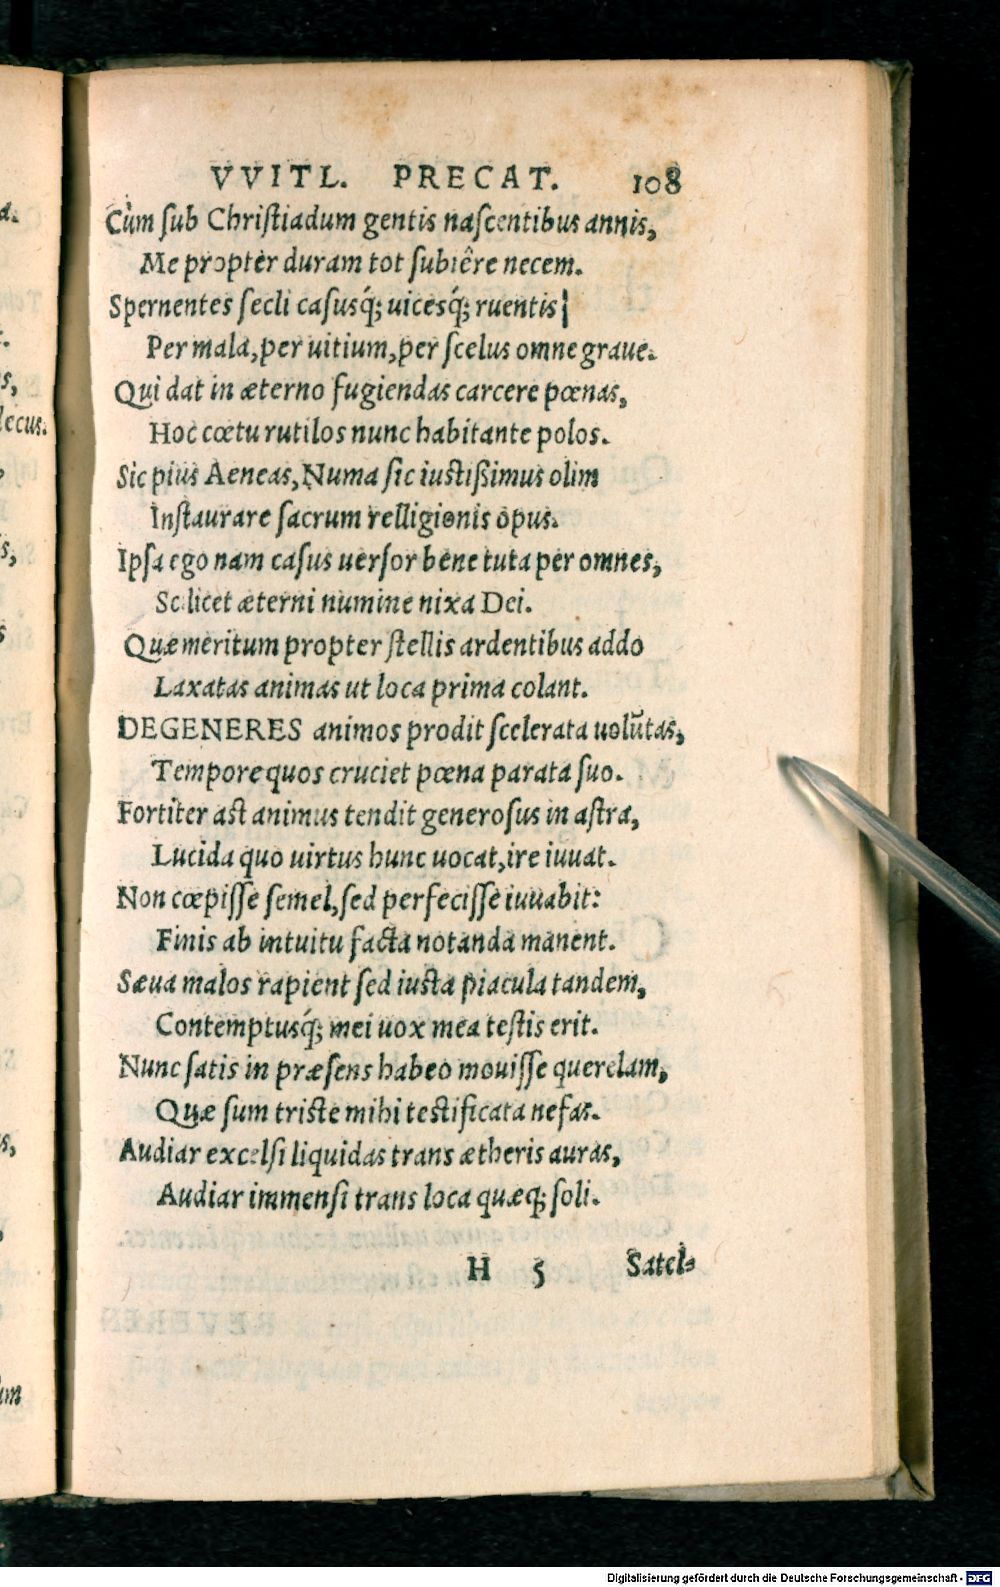 VVITL. PRECAT. 108
Cùm sub Christiadum gentis nascentibus annis,
Me propter duram tot subiêre necem.
Spernentes secli casusq́; uicesq́; ruentis
Per mala, per uitium, per scelus omne graue.
Qui dat in æterno fugiendas carcere pœnas,
Hoc cœtu rutilos nunc habitante polos.
Sic pius Aeneas, Numa sic iustißimus olim
Instaurare sacrum relligionis opus.
Ipsa ego nam casus uersor bene tuta per omnes,
Scilicet æterni numine nixa Dei.
Quæ meritum propter stellis ardentibus addo
Laxatas animas ut loca prima colant.
DEGENERES animos prodit scelerata uolūtas,
Tempore quos cruciet pœna parata suo.
Fortiter ast animus tendit generosus in astra,
Lucida quo uirtus hunc uocat, ire iuuat.
Non cœpisse semel, sed perfecisse iuuabit:
Finis ab intuitu facta notanda manent.
Sæua malos rapient sed iusta piacula tandem,
Contemptusq́; mei uox mea testis erit.
Nunc satis in præsens habeo mouisse querelam,
Quæ sum triste mihi testificata nefas.
Audiar excelsi liquidas trans ætheris auras,
Audiar immensi trans loca quæq; soli.
H 5 Satel-
a.
s,
lecus.
s,
s,
um
Digitalisierung gefördert durch die Deutsche Forschungsgemeinschaft - DFG